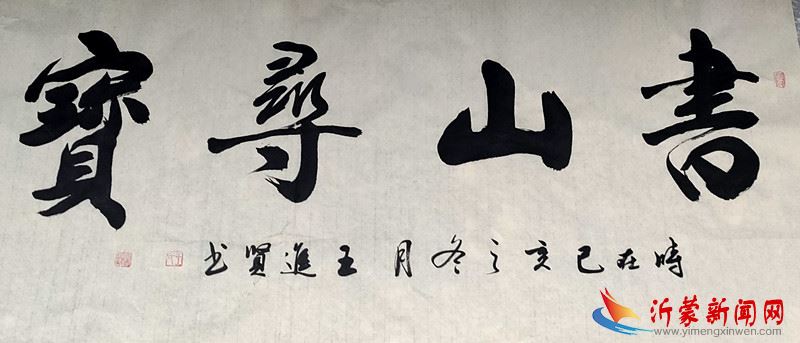 書山尋寶
時在己亥之冬月王進賢书
沂蒙新闻网
www.yimengxinwen.com